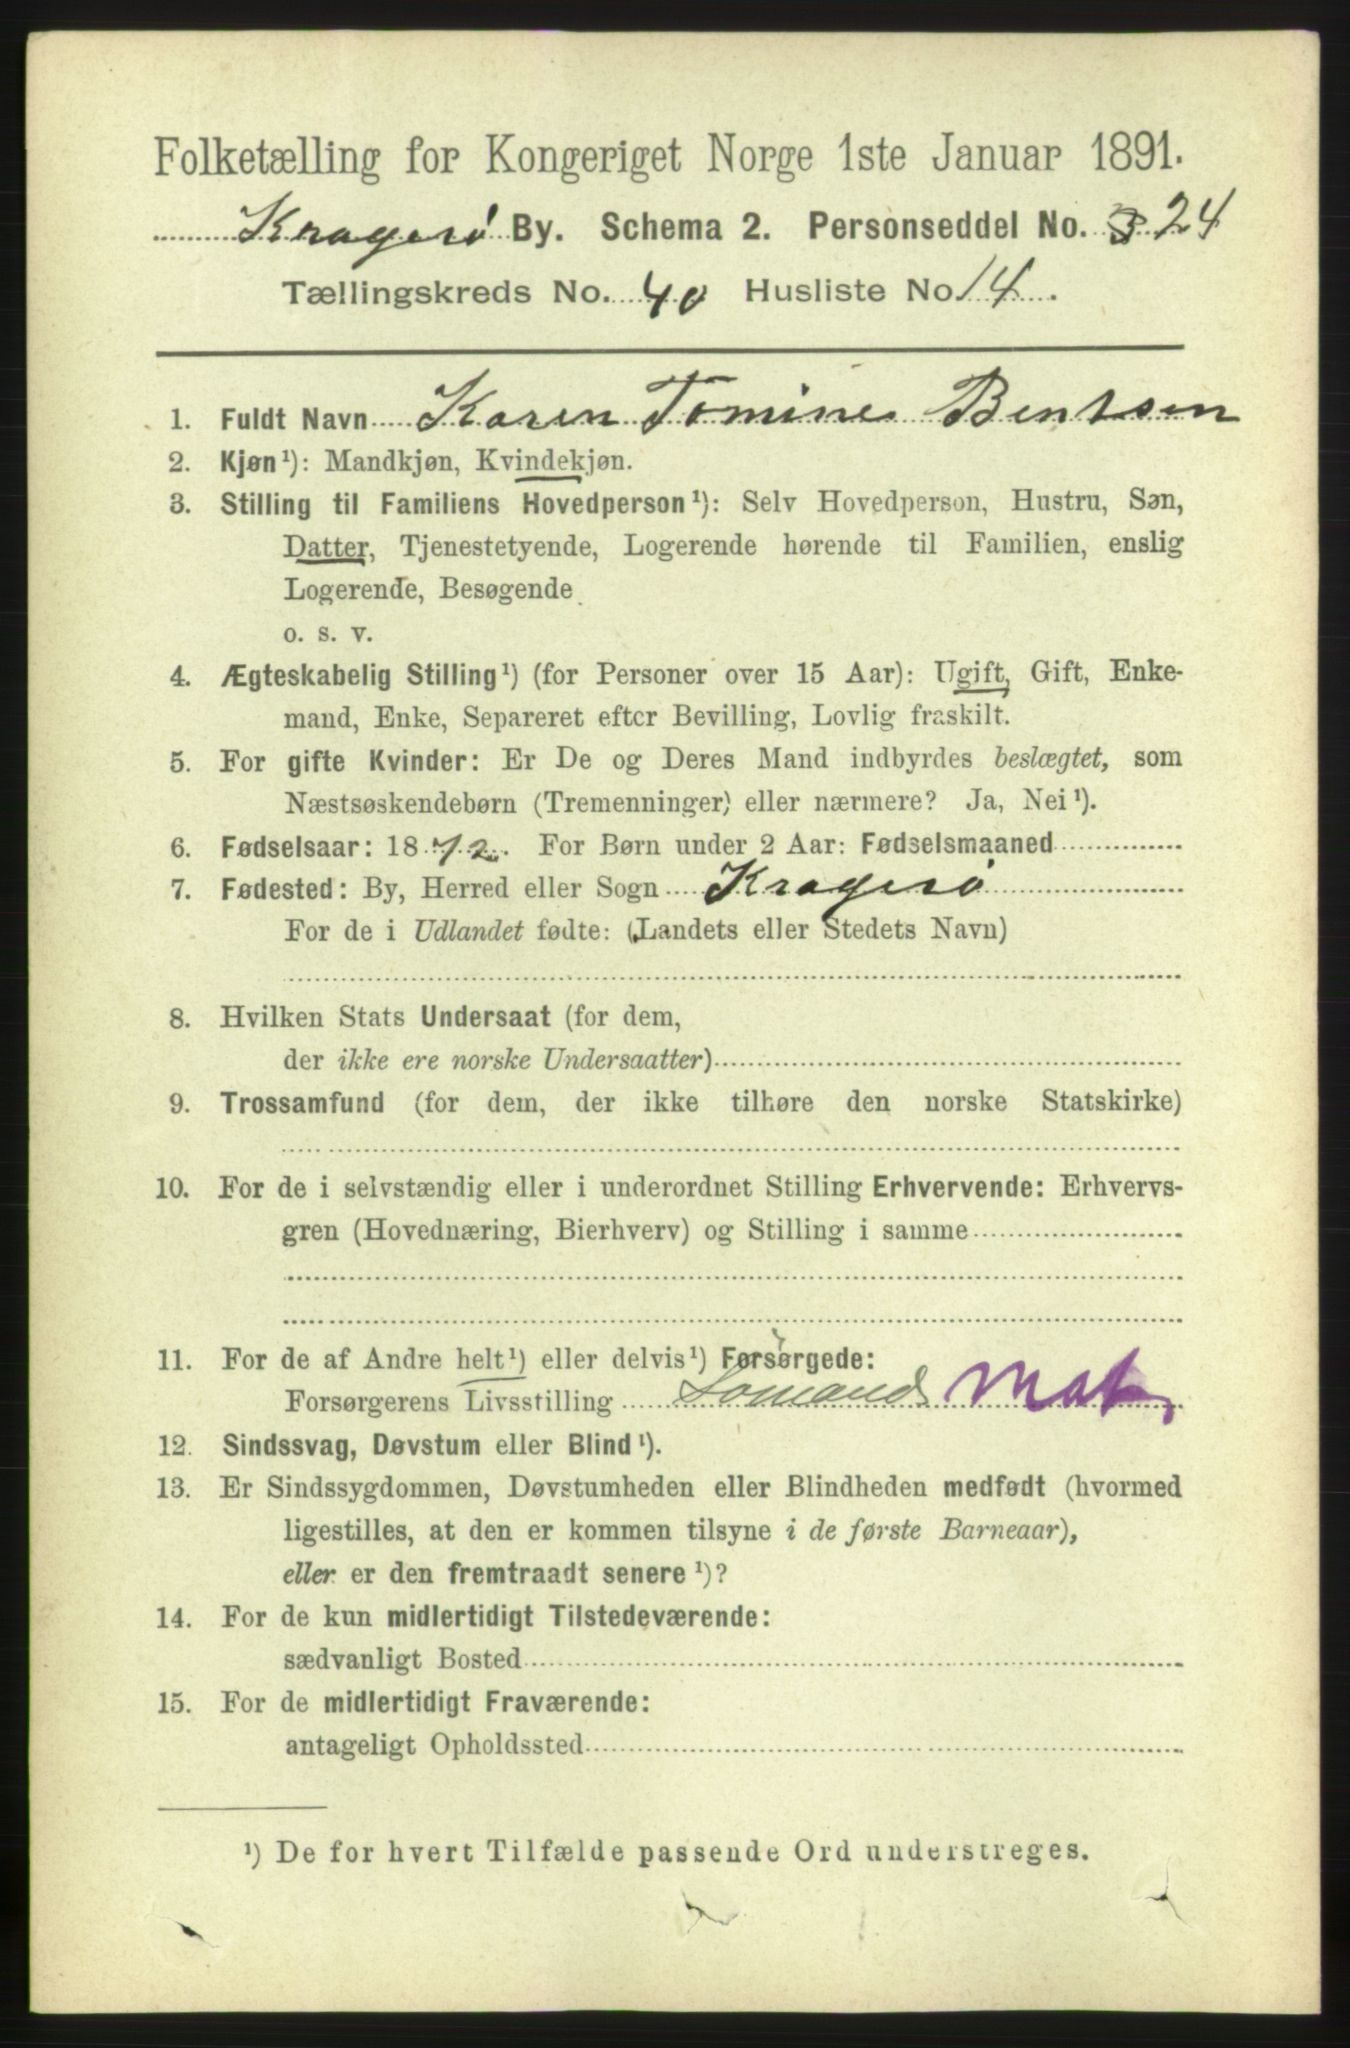 Folketælling for Kongeriget Norge 1ste Januar 1891.
Kragerø By. Schema 2. Personseddel No. 24
Tællingskreds No. 40 Husliste No 14.
1. Fuldt Navn Karen Tomine Bentsen
2. Kjøn¹): Mandkjøn, Kvindekjøn.
3. Stilling til Familiens Hovedperson¹): Selv Hovedperson, Hustru, Søn,
Datter, Tjenestetyende, Logerende hørende til Familien, enslig
Logerende, Besøgende
o. s. v.
4. Ægteskabelig Stilling¹) (for Personer over 15 Aar): Ugift, Gift, Enke-
mand, Enke, Separeret efter Bevilling, Lovlig fraskilt.
5. For gifte Kvinder: Er De og Deres Mand indbyrdes beslægtet, som
Næstsøskendebørn (Tremenninger) eller nærmere? Ja, Nei¹).
6. Fødselsaar: 1872. For Børn under 2 Aar: Fødselsmaaned
7. Fødested: By, Herred eller Sogn Kragerø
For de i Udlandet fødte: (Landets eller Stedets Navn)
8. Hvilken Stats Undersaat (for dem,
der ikke ere norske Undersaatter)
9. Trossamfund (for dem, der ikke tilhøre den norske Statskirke)
10. For de i selvstændig eller i underordnet Stilling Erhvervende: Erhvervs-
gren (Hovednæring, Bierhverv) og Stilling i samme
11. For de af Andre helt¹) eller delvis¹) Forsørgede:
Forsørgerens Livsstilling Sømands Mat,
12. Sindssvag, Døvstum eller Blind¹).
13. Er Sindssygdommen, Døvstumheden eller Blindheden medfødt (hvormed
ligestilles, at den er kommen tilsyne i de første Barneaar),
eller er den fremtraadt senere¹)?
14. For de kun midlertidigt Tilstedeværende:
sædvanligt Bosted
15. For de midlertidigt Fraværende:
antageligt Opholdssted
¹) De for hvert Tilfælde passende Ord understreges.